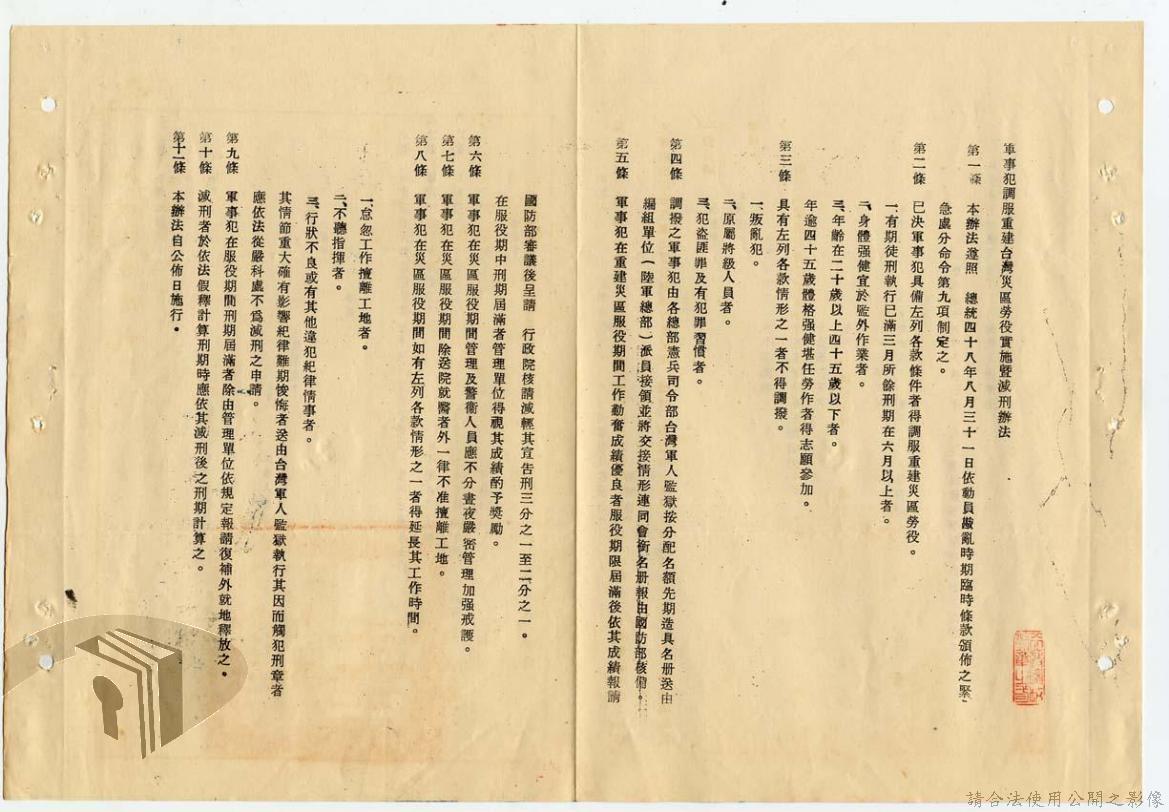 軍事犯調服重建台灣災區勞役實施暨減刑辦法
第一條　本辦法遵照　總統四十八年八月三十一日依動員戡亂時期臨時條款頒佈之緊
急處分命令第九項制定之。
第二條　已決軍事犯具備左列各款條件者得調服重建災區勞役。
一、有期徒刑執行已滿三月所餘刑期在六月以上者。
二、身體强健宜於監外作業者。
三、年齡在二十歲以上四十五歲以下者。
年逾四十五歲體格强健堪任勞作者得志願參加。
第三條　具有左列各款情形之一者不得調撥。
一、叛亂犯。
二、原屬將級人員者。
三、犯盜匪罪及有犯罪習慣者。
第四條　調撥之軍事犯由各總部憲兵司令部台灣軍人監獄按分配名額先期造具名册送由
編組單位（陸軍總部）派員接領並將交接情形連同會銜名册報由國防部核備。
第五條　軍事犯在重建災區服役期間工作勤奮成績優良者服役期限屆滿後依其成績報請
國防部審議後呈請　行政院核請減輕其宣告刑三分之一至二分之一。
在服役期中刑期屆滿者管理單位得視其成績酌予獎勵。
第六條　軍事犯在災區服役期間管理及警衞人員應不分晝夜嚴密管理加强戒護。
第七條　軍事犯在災區服役期間除送院就醫者外一律不准擅離工地。
第八條　軍事犯在災區服役期間如有左列各款情形之一者得延長其工作時間。
一、怠忽工作擅離工地者。
二、不聽指揮者。
三、行狀不良或有其他違犯紀律情事者。
其情節重大確有影響紀律難期悛悔者送由台灣軍人監獄執行其因而觸犯刑章者
應依法從嚴科處不為減刑之申請。
第九條　軍事犯在服役期間刑期屆滿者除由管理單位依規定報請復補外就地釋放之。
第十條　減刑者於依法假釋計算刑期時應依其減刑後之刑期計算之。
第十一條　本辦法自公佈日施行。
請合法使用公開之影像